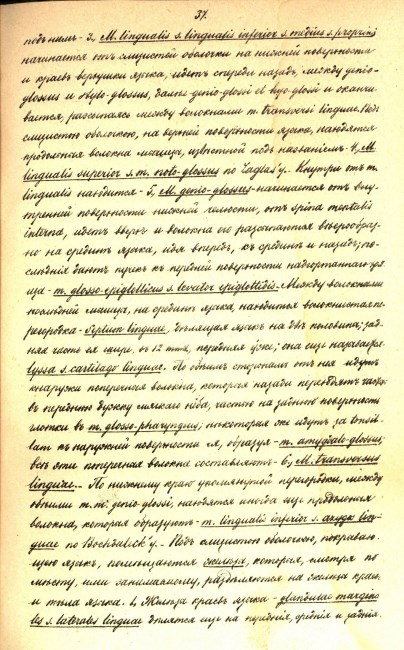 37.
подъ нимъ - 3, M. lingualis s. lingualis inferior s. medius s. proprius
начинается отъ слизистой оболочки на нижней поверхности
и краевъ верхушки языка, идетъ спереди назадъ, между genio-
glossus и stylo-glossus, далѣе genio-glossi et hyo-glossi и оканчи-
вается, разсыпаясь между волокнами m. transversi linguae. Подъ
слизистою оболочкою, на верхней поверхности языка, находятся
продольныя волокна мышцы, извѣстной подъ названіемъ - 4, M.
lingualis superior s. m. noto-glossus по Zaglas'у. Кнутри отъ m.
lingualis находится - 5, M. genio-glossus - начинается отъ вну-
тренней поверхности нижней челюсти, отъ spina mentalis
interna, идетъ вверхъ и волокна его разсыпаются вѣерообраз-
но на срединѣ языка, идя впередъ, къ срединѣ и назадъ; по-
слѣднія даютъ пучекъ къ передней поверхности надгортаннаго хря-
ща - m. glosso-epiglotticus s. levator epiglottidis. - Между волокнами
послѣдней мышцы, на срединѣ языка, находится волокнистая пе-
регородка - Septum linguae, дѣлящая языкъ на двѣ половины; зад-
няя часть ея шире, въ 12 mm, передняя уже; она еще называется
lyssa s. cartilago linguae. По обѣимъ сторонамъ отъ нея идутъ
кнаружи поперечныя волокна, которыя назади переходятъ частью
въ переднюю дужку мягкаго нёба, частью на заднюю поверхность
глотки въ m. glosso-pharyngeus; нѣкоторыя же идутъ за tonsil-
lam къ наружной поверхности ея, образуя - m. amygdalo-glossus;
всѣ эти поперечныя волокна составляютъ - 6, M. transversus
linguae. - По нижнему краю упомянутой перегородки, между
обѣими m.m. genio-glossi, находятся иногда еще продольныя
волокна, которыя образуютъ - m. lingualis inferior s. azygos lin-
guae по Bochdaleck'у. - Подъ слизистою оболочкою, покрываю-
щею языкъ, помѣщаются железы, которыя, смотря по
мѣсту, ими занимаемому, раздѣляются на железы краевъ
и тѣла языка. 1, Железы краевъ языка - glandulae margina-
les s. laterales linguae дѣлятся еще на переднія, среднія и заднія.